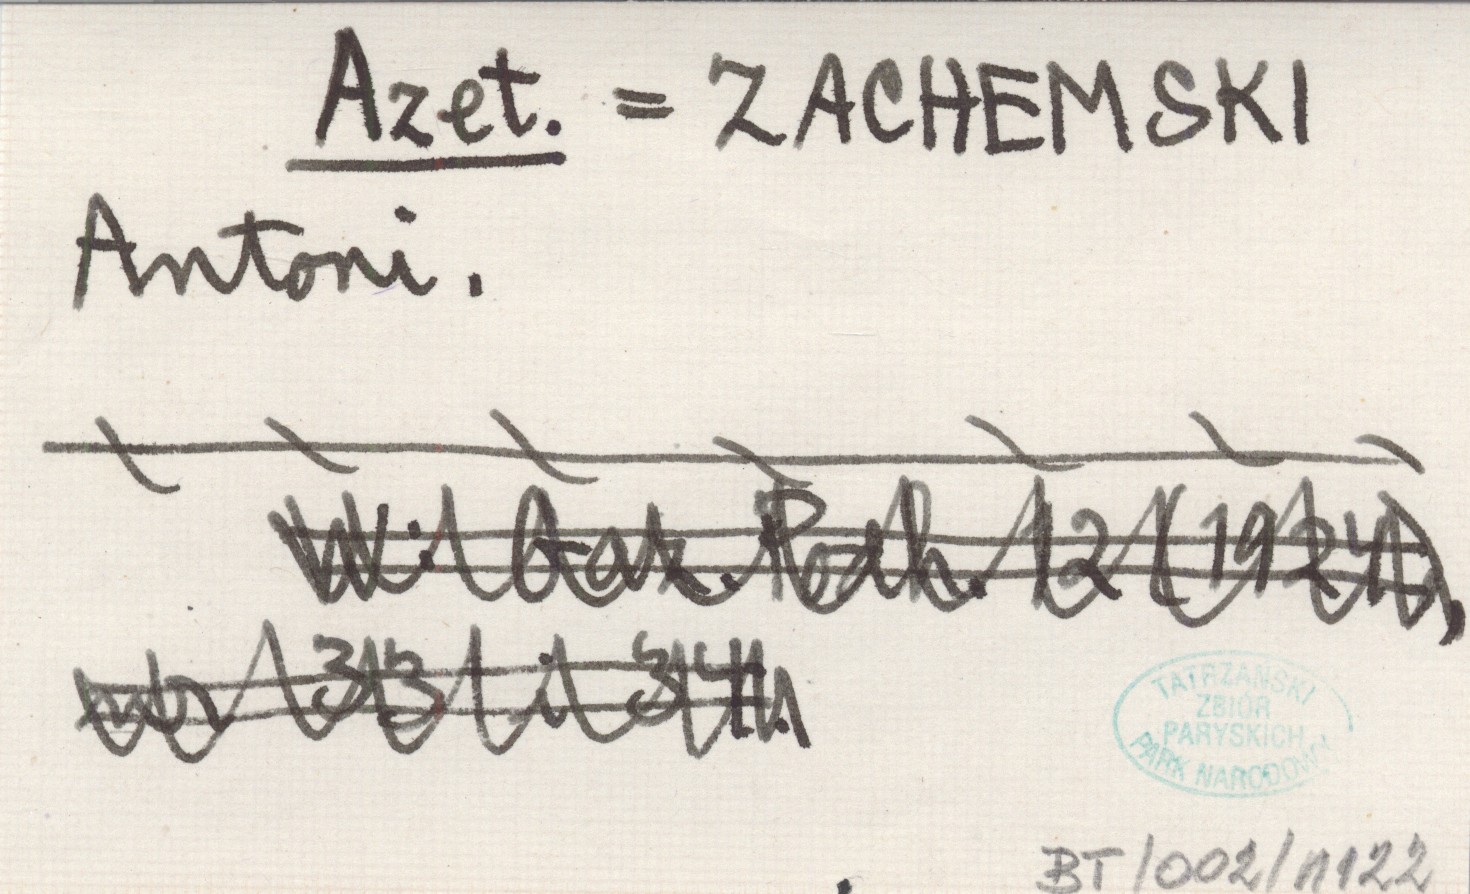 Azet. = ZACHEMSKI
Antoni.
W: Gaz. Podh. 12 (1924),
nr 33 i 34.
TATRZAŃSKI
ZBIÓR
PARYSKICH
PARK NARODOWY
BT/002/A122